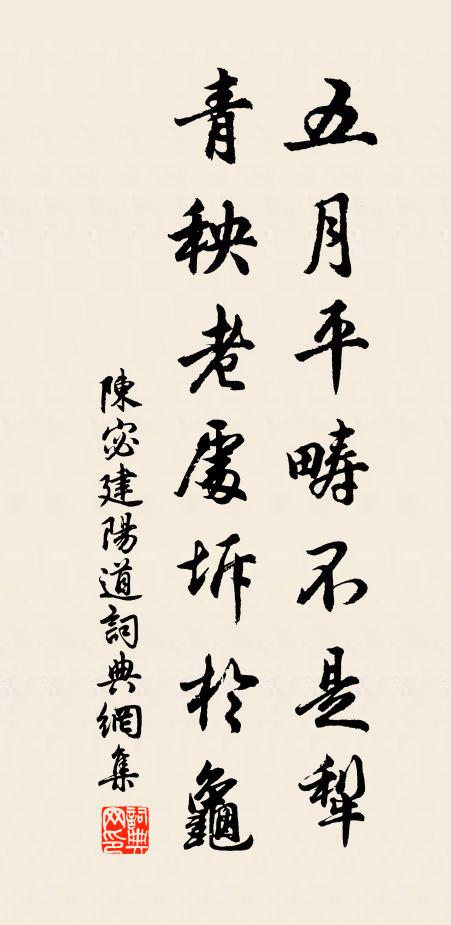 五月平疇不是犁
青秧老處坼於龜
陳宓建陽道詞典網集
詞典网印